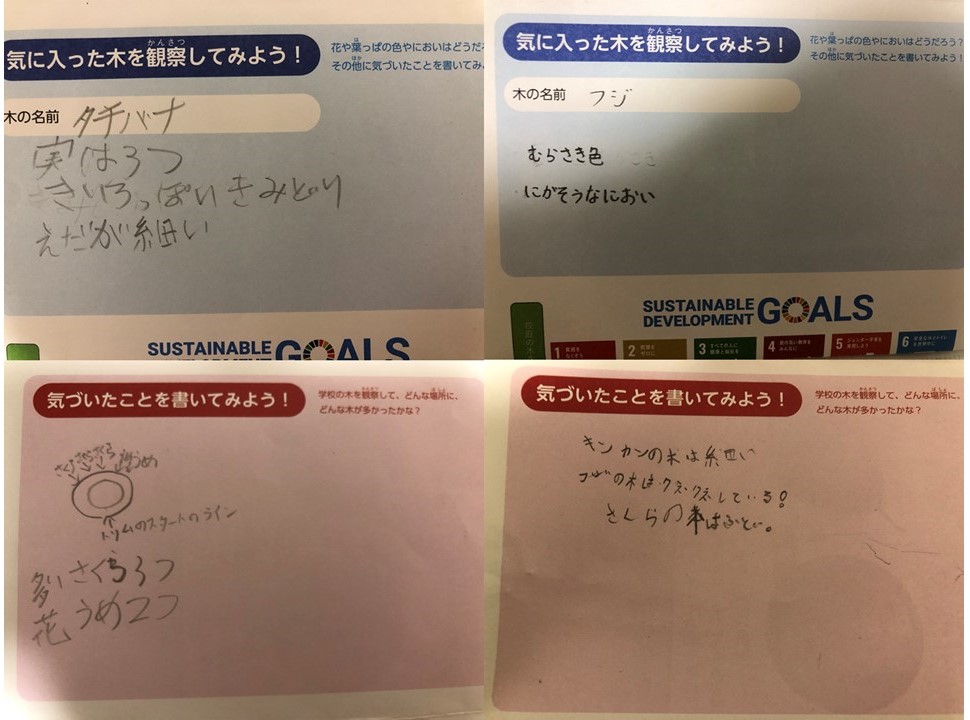 気に入った木を観察してみよう！
かんさつ
花や葉っぱの色やにおいはどうだろ
その他に気づいたことを書いてみ
木の名前 タチバナ
実は3つ
きいろっぽいきみどり
えだが細い
SUSTAINABLE
GOALS
気に入った木を観察してみよう！
かんさつ
花や葉っぱの色やにおいはどうだろう？
その他に気づいたことを書いてみよう！
木の名前 フジ
むらさき色
にがそうなにおい
SUSTAINABLE
DEVELOPMENT GOALS
1 貧困をなくそう
2 飢餓をゼロに
3 すべての人に健康と福祉を
4 質の高い教育をみんなに
5 ジェンダー平等を実現しよう
6
気づいたことを書いてみよう！
学校の木を観察して、どんな場所に、
どんな木が多かったかな？
さくら さくら さくら うめ
トリムのスタートのライン
多い さくら3つ
花 うめ2つ
気づいたことを書いてみよう！
学校の木を観察して、どんな場所に、
どんな木が多かったかな？
キンカンの木は細い
の木はクネクネしている!
の木はふとい。